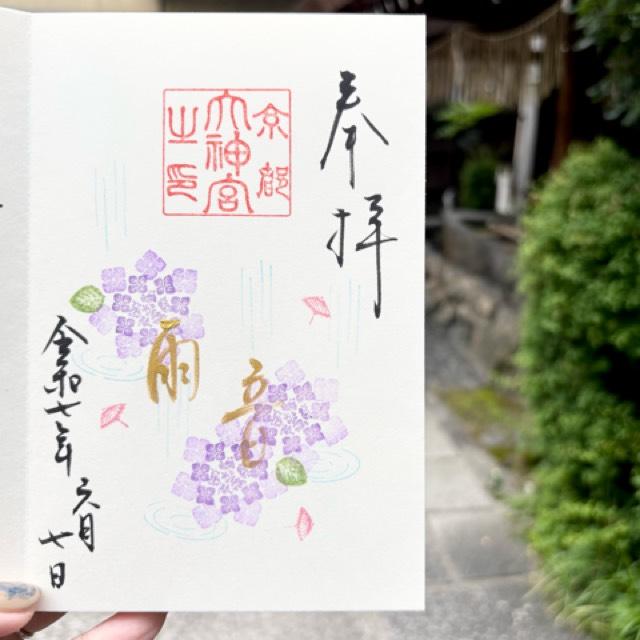 奉拝
京都
大神宮
之印
雨音
令和七年
六月
七日